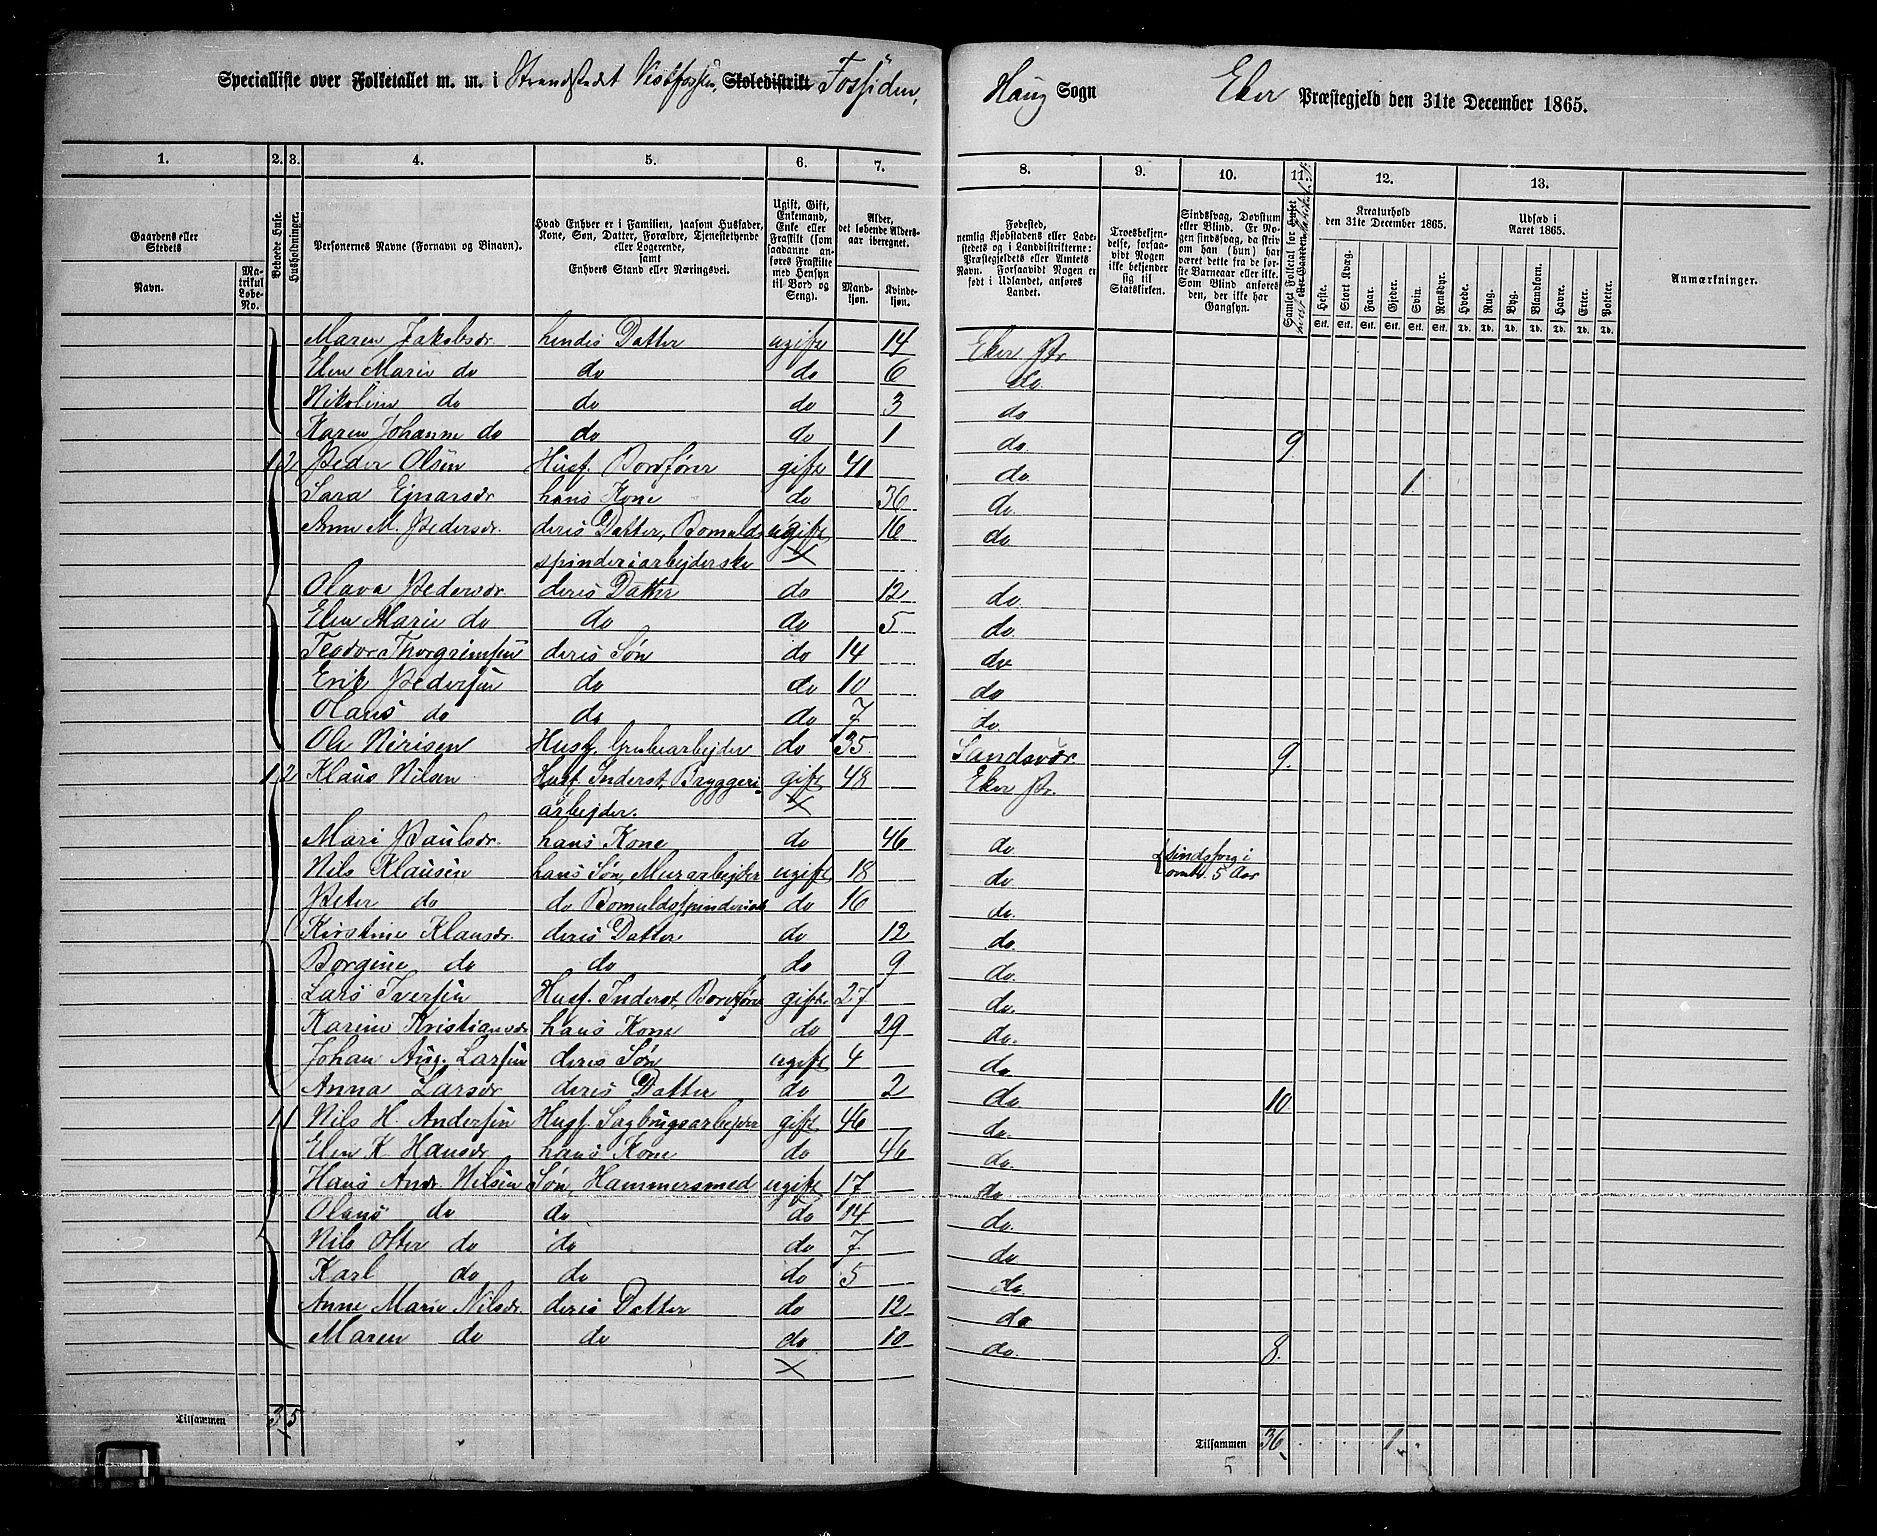 Specialliste over Folketallet m. m. i Strandstedet Vestfossen, Skoledistrikt Fossiden, Haug Sogn Eker Præstegjeld den 31te December 1865.
1. 2. 3. 4. 5. 6. 7. 8. 9. 10. 11. 12. 13.
Gaardens eller Stedets
Navn.
Matrikul Løbe-No.
Beboede Huse.
Husholdninger.
Personernes Navne (Fornavn og Binavn).
Hvad Enhver er i Familien, saasom Husfader, Kone, Søn, Datter, Forældre, Tjenestetyende eller Logerende, samt Enhvers Stand eller Næringsvei.
Ugift, Gift, Enkemand, Enke eller Fraskilt (som saadanne anføres Fraskilte med Hensyn til Bord og Seng).
Alder, det løbende Alders-aar iberegnet.
Mandkjøn.
Kvindekjøn.
Fødested, nemlig Kjøbstadens eller Ladestedets og i Landdistrikterne: Præstegjeldets eller Amtets Navn. Forsaavidt Nogen er født i Udlandet, anføres Landet.
Troesbekjendelse, forsaavidt Nogen ikke bekjender sig til Statskirken.
Sindssvag, Døvstum eller Blind. Er Nogen sindssvag, da skriv om han (hun) har været dette fra de første Barneaar eller ikke. Som Blind anføres den, der ikke har Gangsyn.
Kreaturhold den 31te December 1865.
Heste. Stort Kvæg. Faar. Gjeder. Svin. Rensdyr.
Udsæd i Aaret 1865.
Hvede. Rug. Byg. Blandkorn. Havre. Erter. Poteter.
Anmærkninger.
Maren Jakobsdr. hendes Datter ugift 14 Eker Pr.
Elen Marie do do do 6 do.
Nikoline do do do 3 do
Karen Johanne do do do 1 do. 9
1 2 Peder Olsen Husf. Bordfører gift 41 do. 1
Sara Ejnarsdr hans Kone do 36 do.
Anne M. Pedersdr. deres Datter, Bomulds ugift 16 do
spinderiarbejderske
Olava Pedersdr. deres Datter do 12 do.
Elen Marie do do do 5 do.
Teodor Thorgrimsen deres Søn do 14 do
Erik Pedersen do do 10 do
Olaus do do do 7 do.
Ole Nirisen Husf. Grubearbejder do 35 Sandsvær 9.
1 2 Klaus Nilsen Husf. Inderst, Bryggeri- gift 48 Eker Pr.
arbejder.
Mari Paulsdr. hans Kone do 46 do
Nils Klausen hans Søn, Murarbejder ugift 18 do. Sindssvag i omtr. 5 Aar
Peter do do Bomuldsspinderiarb do 16 do.
Kirstine Klausdr. deres Datter do 12 do.
Borgine do do do 9 do.
Lars Iversen Husf. Inderst, Bordfører gift 27 do.
Karine Kristiansdr hans Kone do 29 do.
Johan Aug. Larsen deres Søn ugift 4 do
Anna Larsdr deres Datter do 2 do 10
1 1 Nils H. Andersen Husf. Sagbrugsarbejder gift 46 do.
Elen K. Hansdr hans Kone do 46 do.
Hans Andr. Nilsen Søn, Hammersmed ugift 17 do
Olaus do do do 14 do.
Nils Otter do do do 7 do
Karl do do do 5 do.
Anne Marie Nilsdr. deres Datter do 12 do
Maren do do do 10 do. 8.
Tilsammen 3 5 Tilsammen 36 1
5